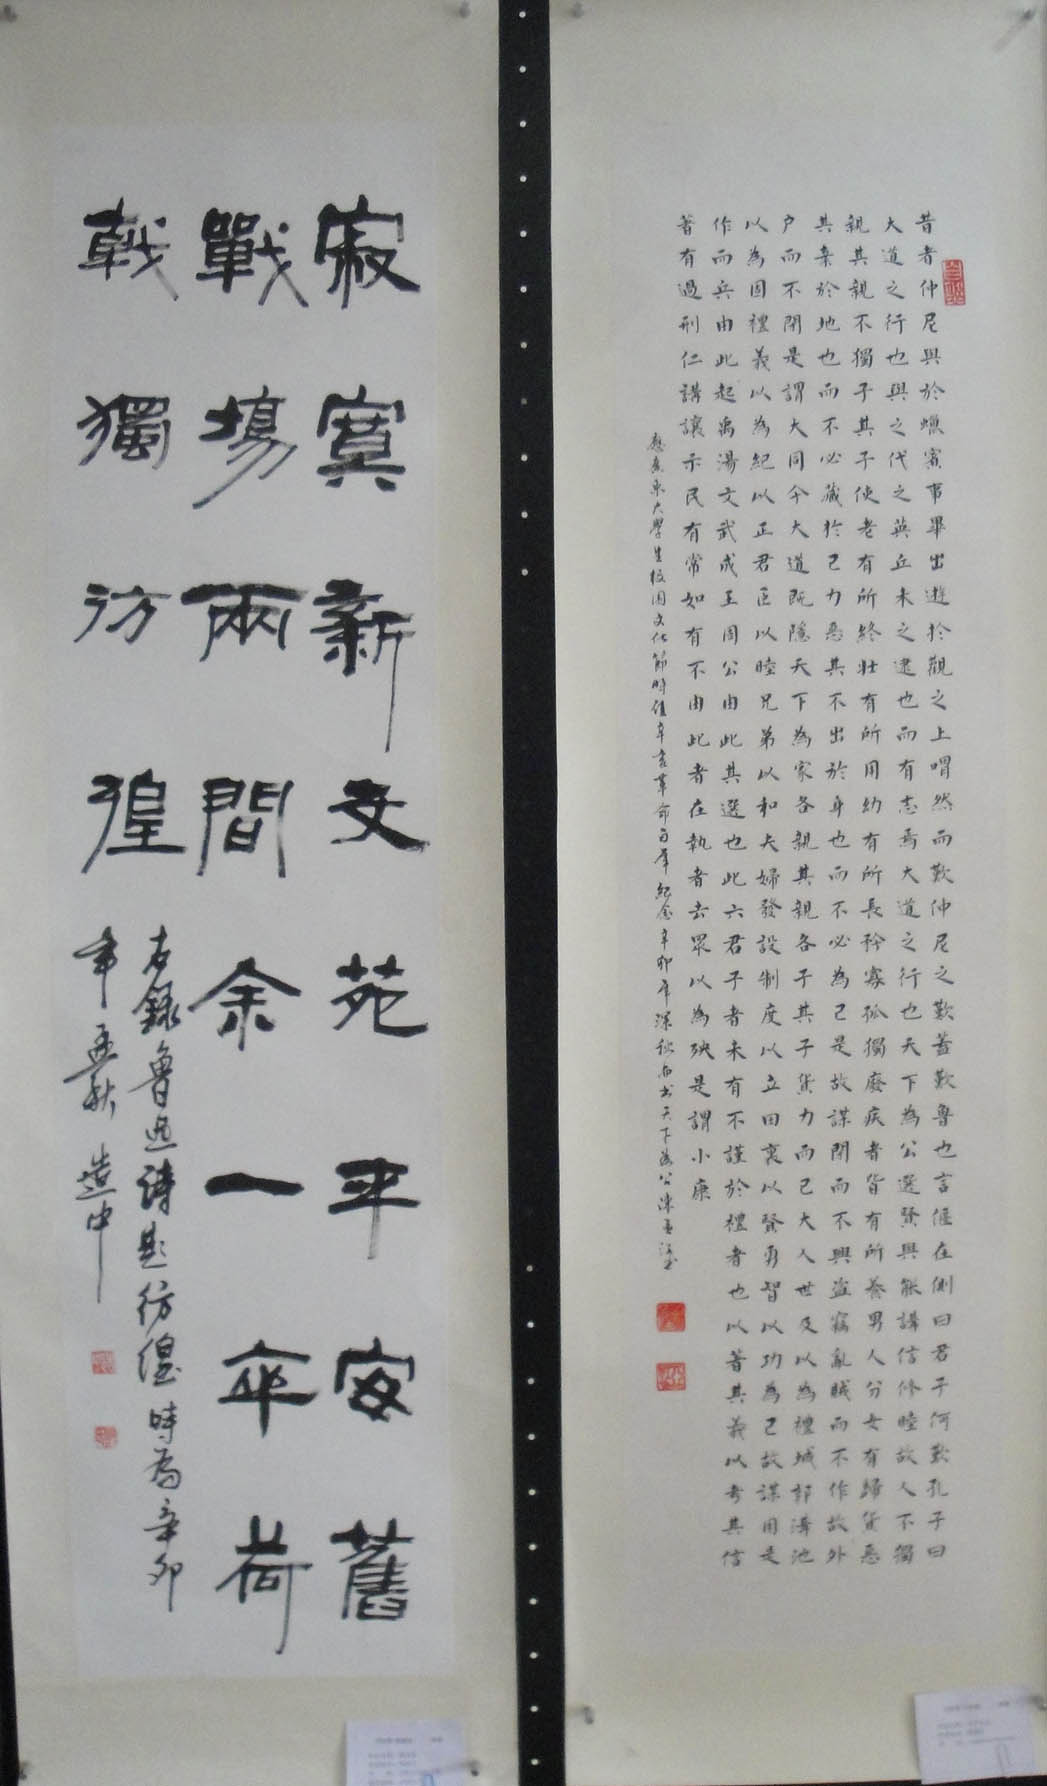 昔者仲尼與於蠟賓事畢出遊於觀之上喟然而歎仲尼之歎蓋歎魯也言偃在側曰君子何歎孔子曰
大道之行也與之代之英丘未之逮也而有志焉大道之行也天下為公選賢與能講信修睦故人不獨
親其親不獨子其子使老有所終壯有所用幼有所長矜寡孤獨廢疾者皆有所養男人分女有歸貨惡
其棄於地也而不必藏於己力惡其不出於身也而不必為己是故謀閉而不興盜竊亂賊而不作故外
户而不閉是謂大同今大道既隱天下為家各親其親各子其子貨力而己大人世及以為禮城郭溝池
以為固禮義以為紀以正君臣以睦兄弟以和夫婦發設制度以立田裏以賢勇智以功為己故謀用是
作而兵由此起禹湯文武成王周公由此其選也此六君子者未有不謹於禮者也以著其義以考其信
著有過刑仁講讓示民有常如有不由此者在執者去眾以為殃是謂小康
應廣東大學生校園文化節時值辛亥革命百年紀念辛卯年深秋書天下為公
寂寞新文苑平安舊
戰場兩間余一卒荷
戟獨彷徨
右錄魯迅詩題彷徨時為辛卯
年孟秋造中